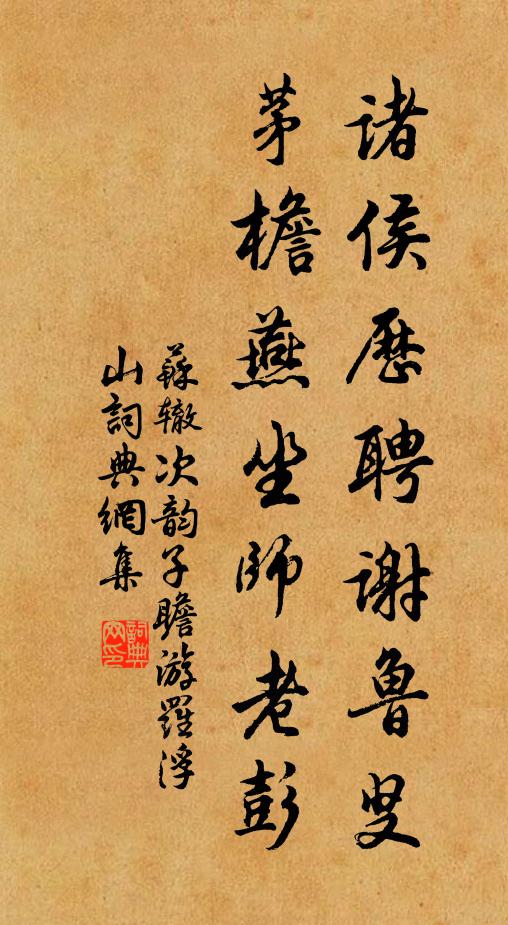 诸侯历聘谢鲁叟
茅檐燕坐师老彭
蘇辙次韵子瞻游羅浮
山詞典網集
詞典
网印